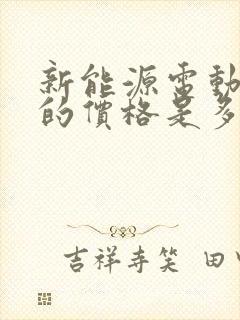 新能源電動
的價格是多
吉祥寺笑 田